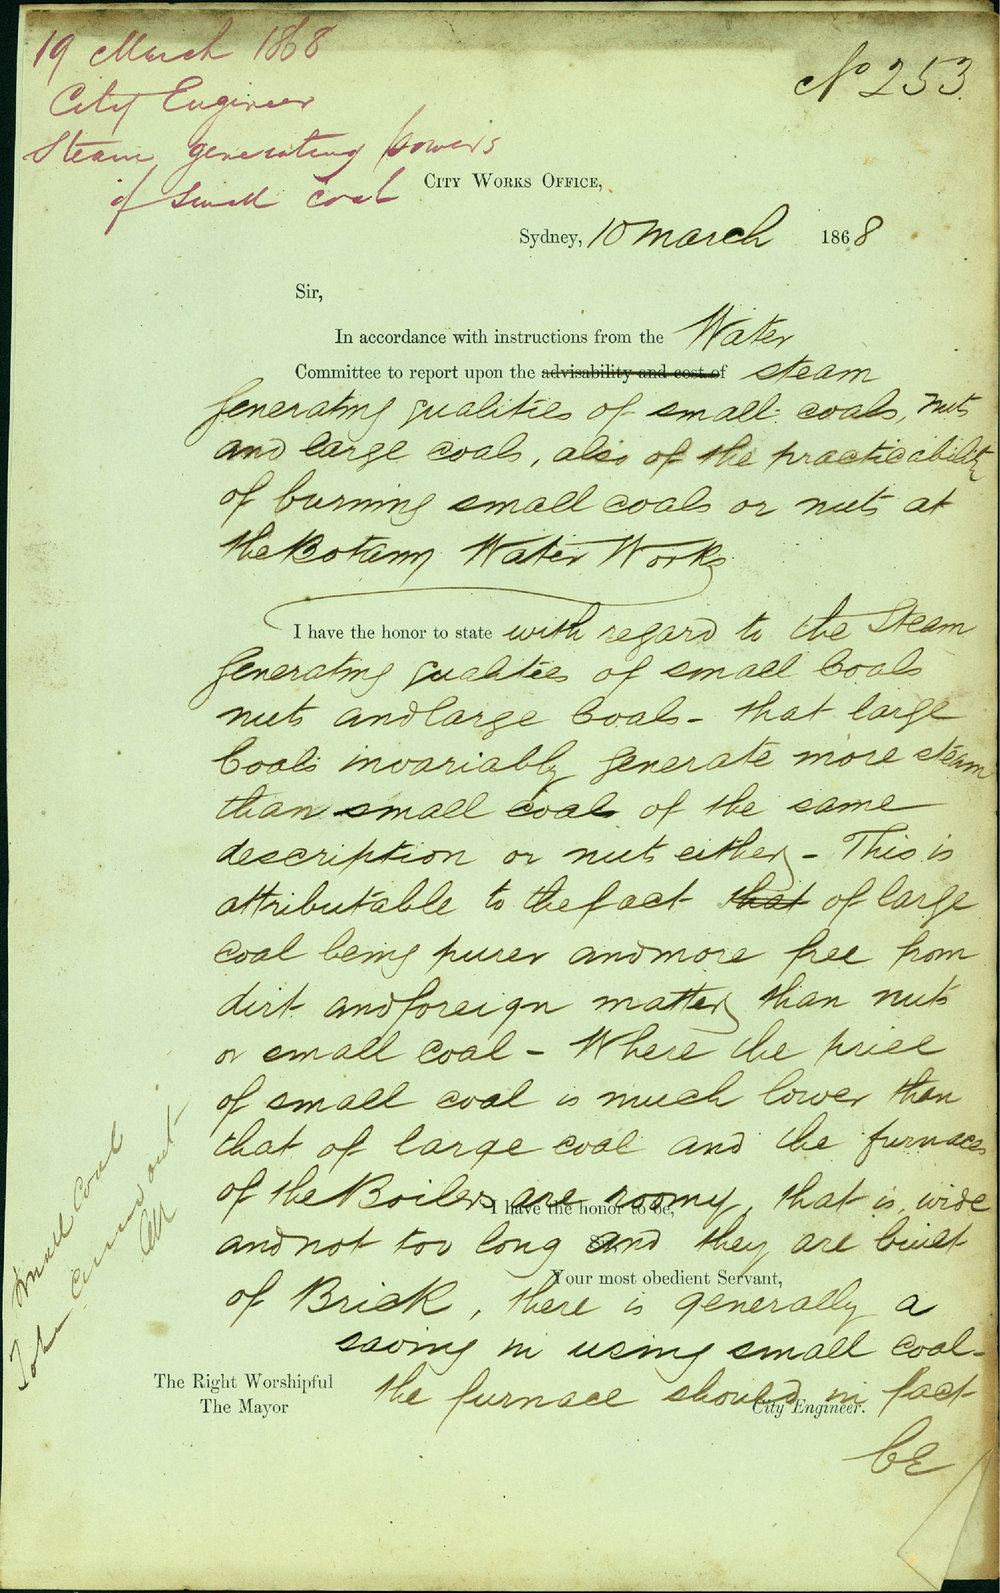 19 March 1868
City Engineer
Steam generating powers
of Small Coal
No 253.
City Works Office,
Sydney, 10 March 1868
Sir,
In accordance with instructions from the Water
Committee to report upon the advisability and cost of steam
generating qualities of small coals, nuts
and large coals, also of the practicability
of burning small coals or nuts at
the Botany Water Works
I have the honor to state with regard to the Steam
generating qualities of small Coals
nuts and large Coals - that large
Coals invariably generate more steam
than small coal of the same
description or nuts either - This is
attributable to the fact that of large
coal being purer and more free from
dirt and foreign matter than nuts
or small coal - Where the price
of small coal is much lower than
that of large coal and the furnaces
of the Boilers are roomy, that is, wide
I have the honor to be,
and not too long and they are built
Your most obedient Servant,
of Brick, there is generally a
saving in using small coal -
The Right Worshipful
The Mayor
the furnace should in fact
City Engineer.
be
Small Coal